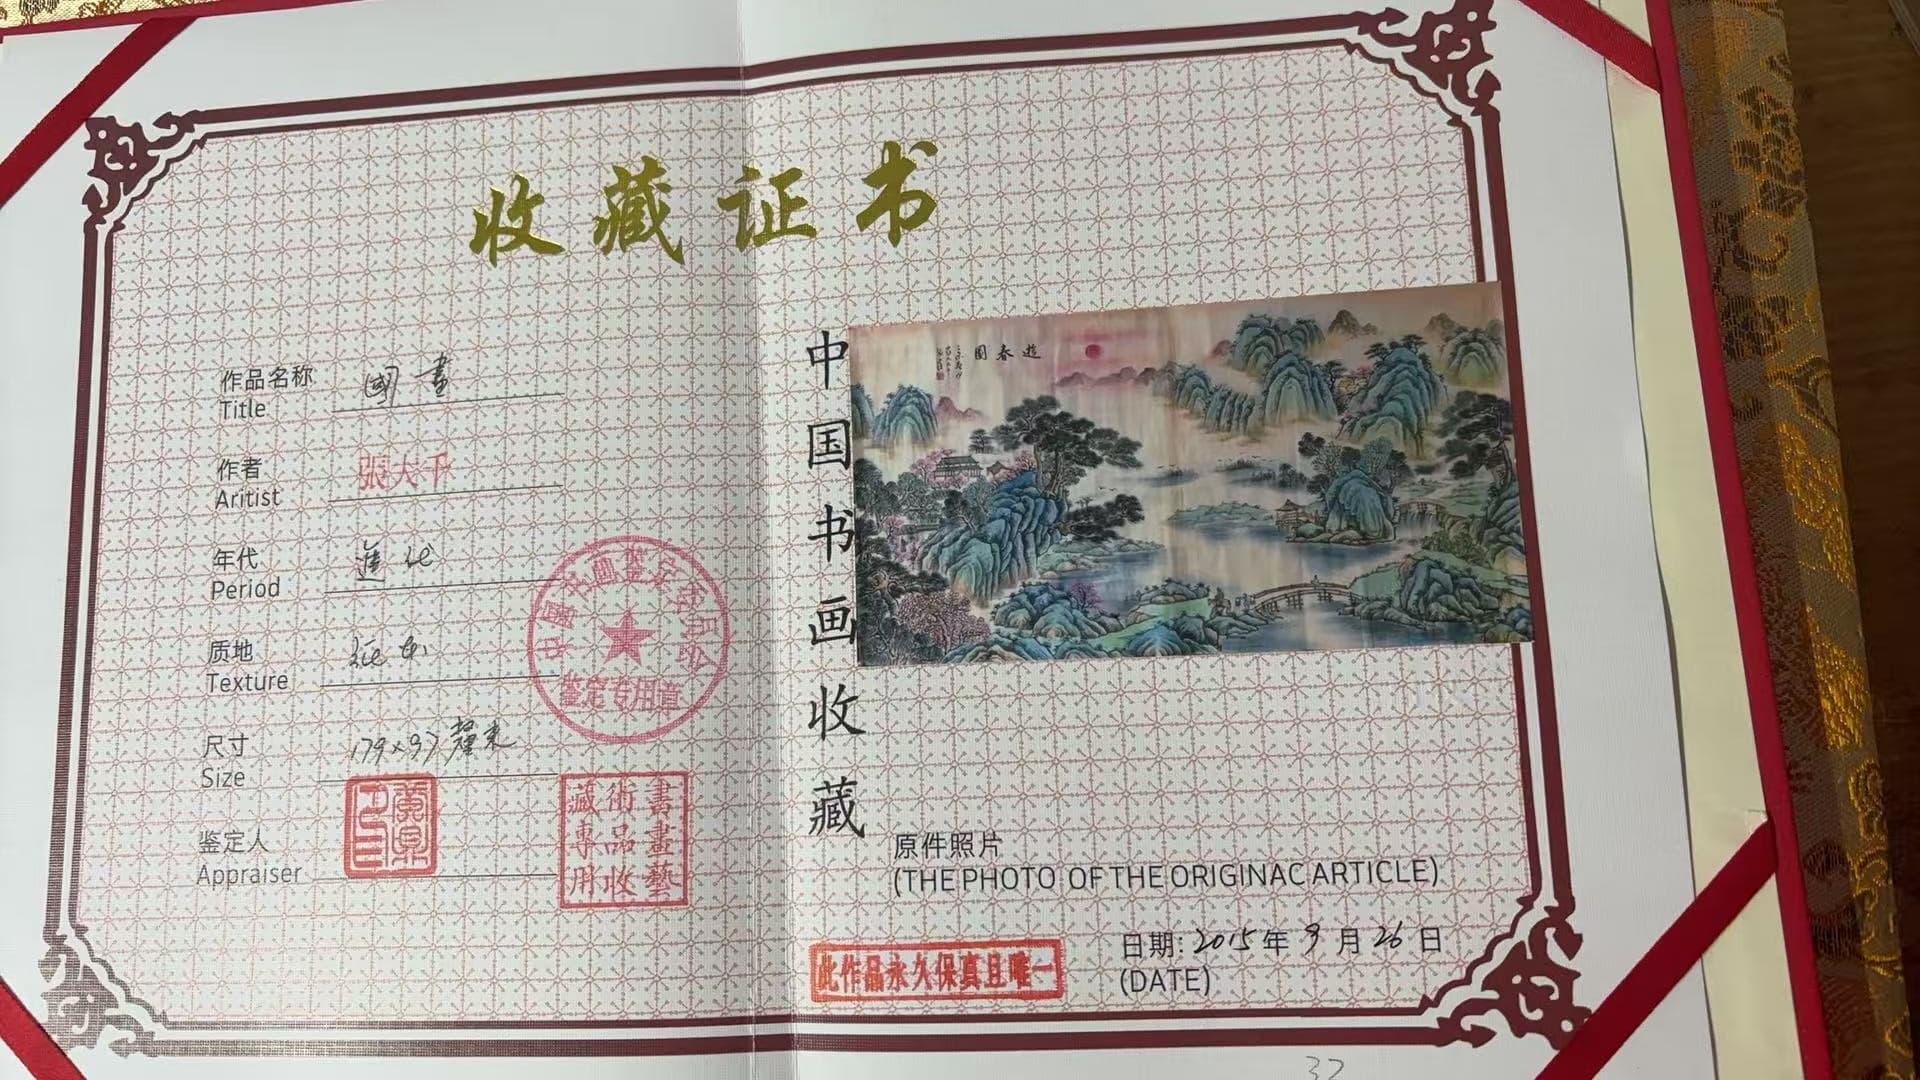 收藏证书
作品名称 國畫
Title
作者 張大千
Aritist
年代
Period
质地 纸本
Texture
尺寸 179×97厘米
Size
鉴定人
Appraiser
中国书画鉴定委员会
鉴定专用章
書畫藝
術品收
藏專用
中国书画收藏
遊春圖
原件照片
(THE PHOTO OF THE ORIGINAC ARTICLE)
此作品永久保真且唯一
日期: 2015年9月26日
(DATE)
32